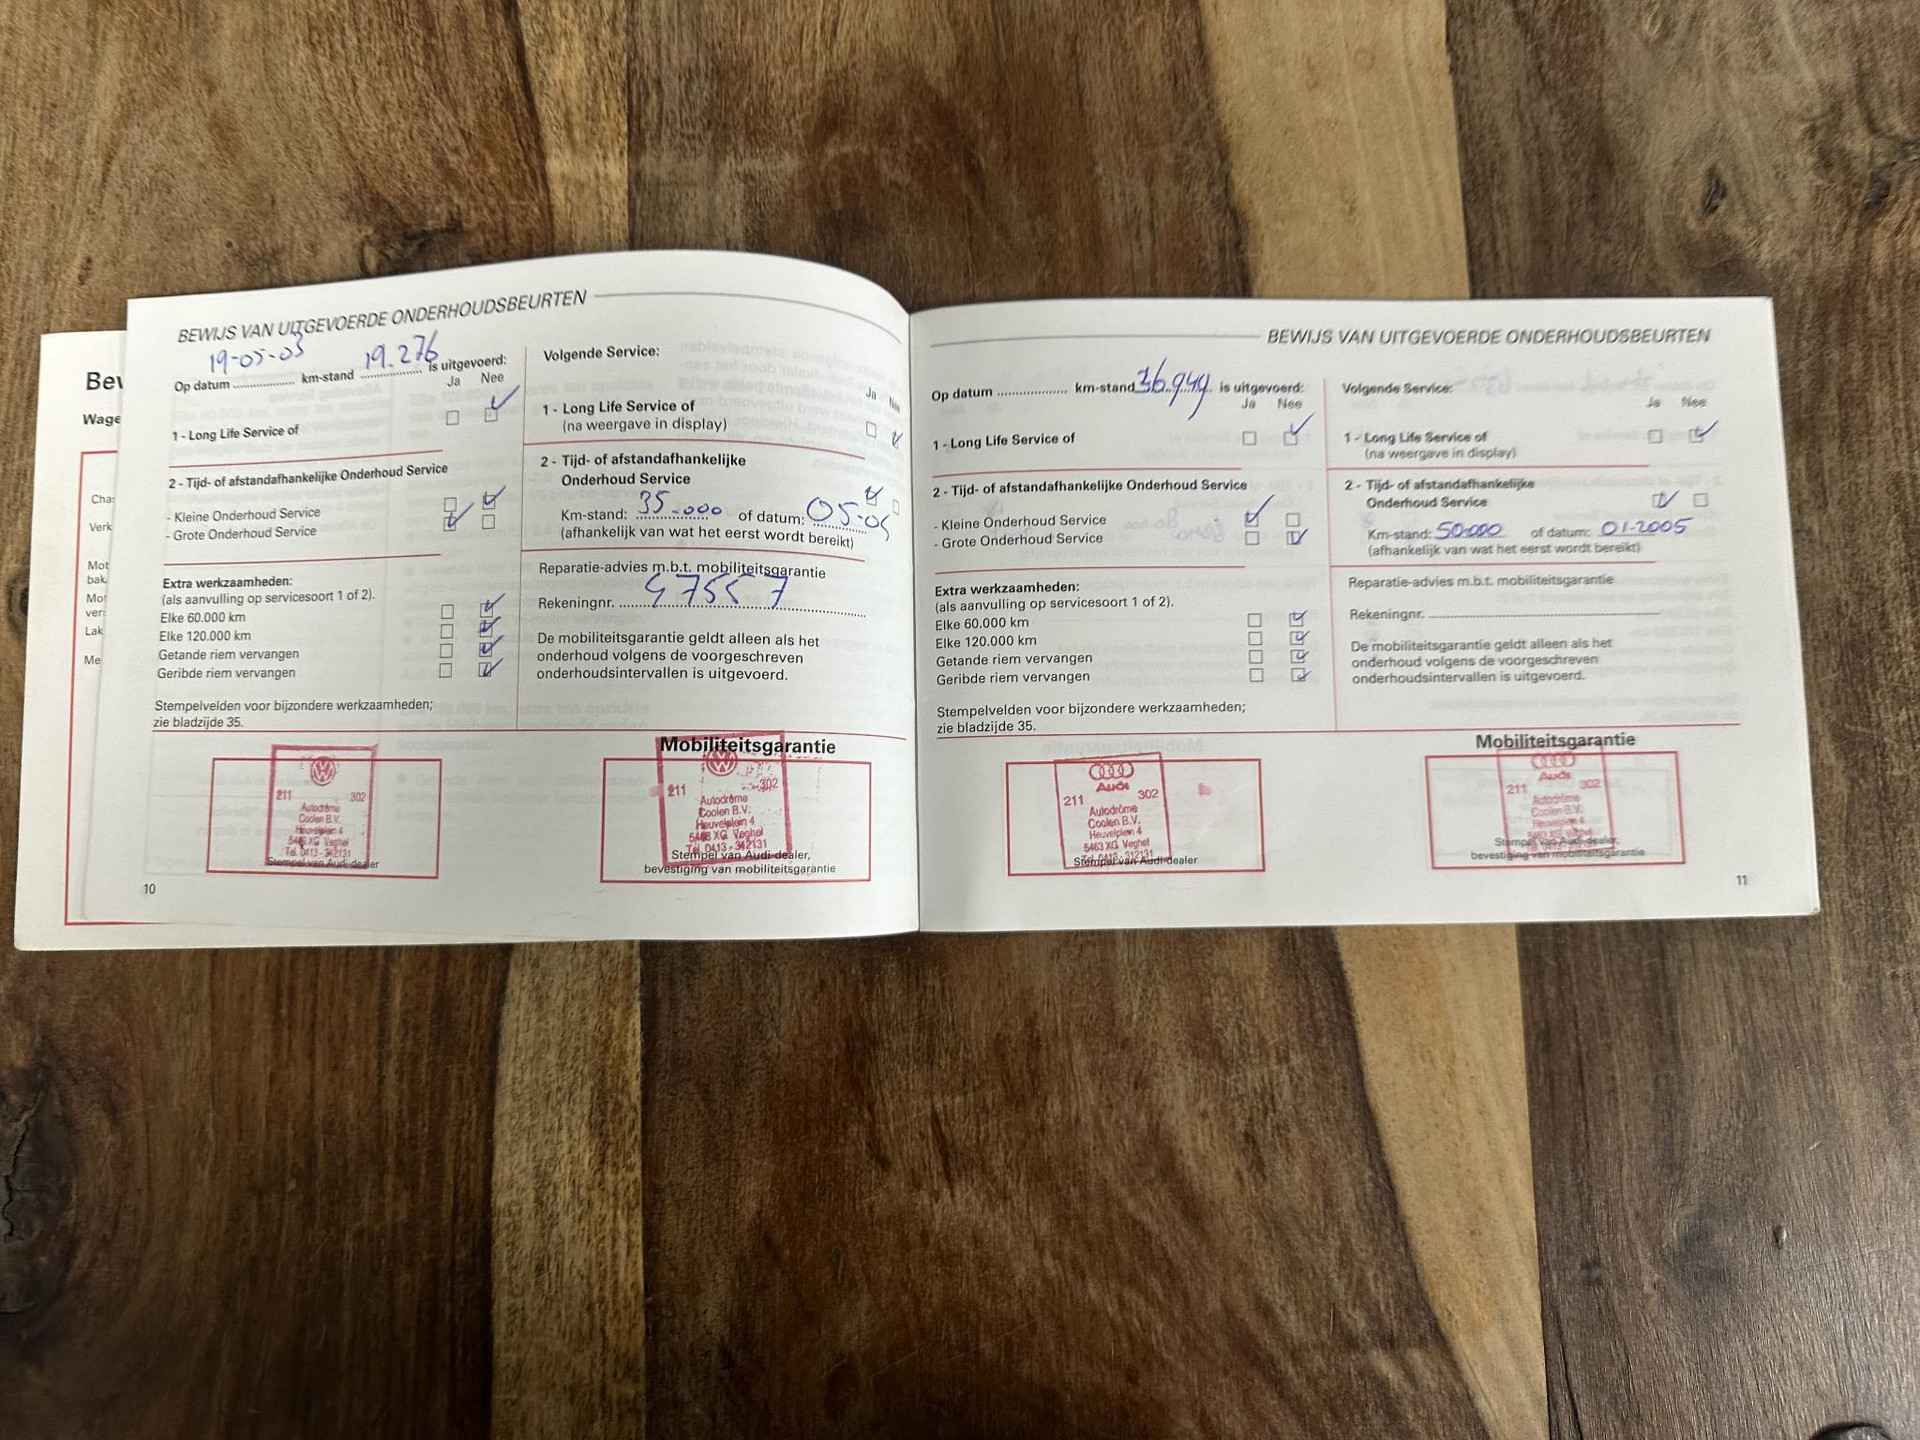 Bev
Wage
Cha
Verk
Mot
bak
Mot
ver
Lak
Me
BEWIJS VAN UITGEVOERDE ONDERHOUDSBEURTEN
19-05-03 19.276
Op datum .................. km-stand .................. is uitgevoerd:
Ja Nee
1 - Long Life Service of
2 - Tijd- of afstandafhankelijke Onderhoud Service
- Kleine Onderhoud Service
- Grote Onderhoud Service
Extra werkzaamheden:
(als aanvulling op servicesoort 1 of 2).
Elke 60.000 km
Elke 120.000 km
Getande riem vervangen
Geribde riem vervangen
Stempelvelden voor bijzondere werkzaamheden;
zie bladzijde 35.
211 302
Autodrôme
Coolen B.V.
Heuvelplein 4
5463 XG Veghel
Tel. 0413 - 342131
Stempel van Audi-dealer
10
Volgende Service:
Ja Nee
1 - Long Life Service of
(na weergave in display)
2 - Tijd- of afstandafhankelijke
Onderhoud Service
Km-stand: 35.000 of datum: 05-04
(afhankelijk van wat het eerst wordt bereikt)
Reparatie-advies m.b.t. mobiliteitsgarantie
Rekeningnr. 47557
De mobiliteitsgarantie geldt alleen als het
onderhoud volgens de voorgeschreven
onderhoudsintervallen is uitgevoerd.
Mobiliteitsgarantie
211 302
Autodrôme
Coolen B.V.
Heuvelplein 4
5463 XG Veghel
Tel. 0413 - 342131
Stempel van Audi-dealer,
bevestiging van mobiliteitsgarantie
BEWIJS VAN UITGEVOERDE ONDERHOUDSBEURTEN
Op datum .................. km-stand 36.949 is uitgevoerd:
Ja Nee
1 - Long Life Service of
2 - Tijd- of afstandafhankelijke Onderhoud Service
- Kleine Onderhoud Service
- Grote Onderhoud Service
Extra werkzaamheden:
(als aanvulling op servicesoort 1 of 2).
Elke 60.000 km
Elke 120.000 km
Getande riem vervangen
Geribde riem vervangen
Stempelvelden voor bijzondere werkzaamheden;
zie bladzijde 35.
Audi
211 302
Autodrôme
Coolen B.V.
Heuvelplein 4
5463 XG Veghel
Stempel van Audi-dealer
Volgende Service:
Ja Nee
1 - Long Life Service of
(na weergave in display)
2 - Tijd- of afstandafhankelijke
Onderhoud Service
Km-stand: 50.000 of datum: 01-2005
(afhankelijk van wat het eerst wordt bereikt)
Reparatie-advies m.b.t. mobiliteitsgarantie
Rekeningnr.
De mobiliteitsgarantie geldt alleen als het
onderhoud volgens de voorgeschreven
onderhoudsintervallen is uitgevoerd.
Mobiliteitsgarantie
Audi
211 302
Autodrôme
Coolen B.V.
Heuvelplein 4
5463 XG Veghel
Stempel van Audi-dealer,
bevestiging van mobiliteitsgarantie
11